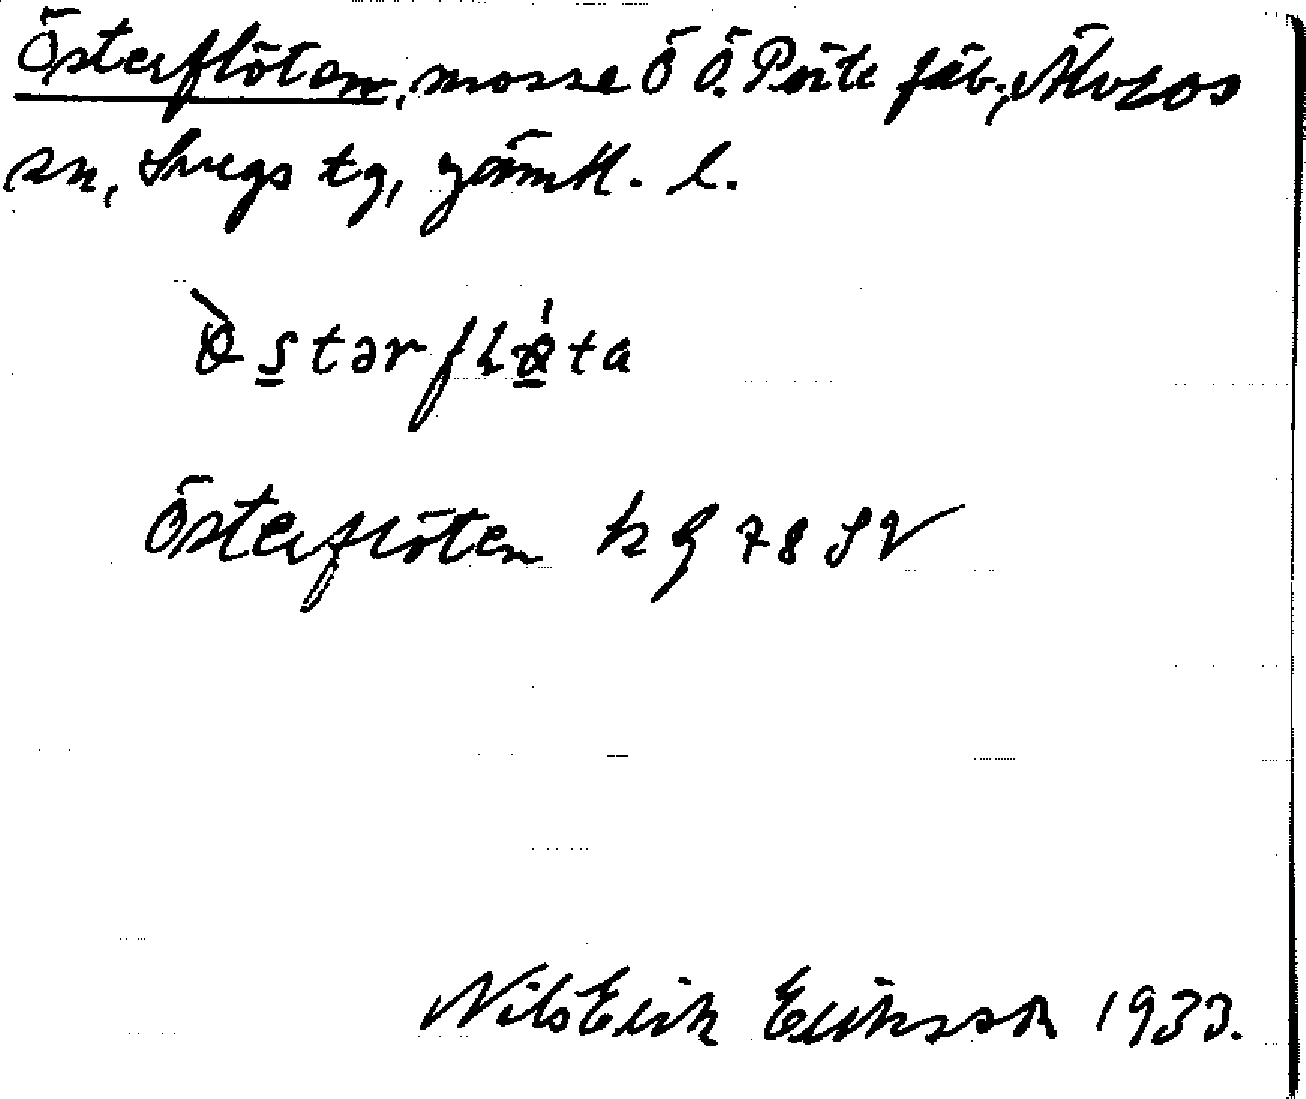 Österflöten, mosse Ö Ö. Peite fäb., Älvros
sn, Svegs tg, Jämtl. l.
Österflöten kg 78 SV
Nils Erik Eriksson 1933.